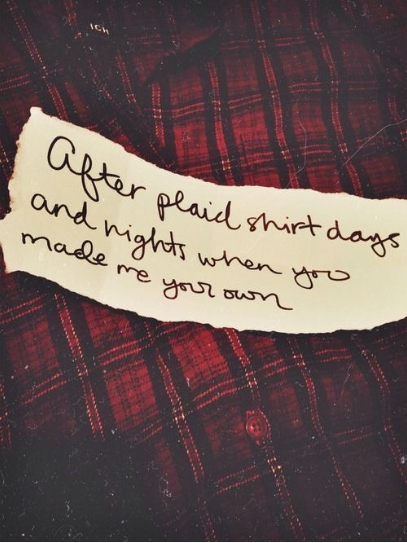 ICH
After plaid shirt days
and nights when you
made me your own